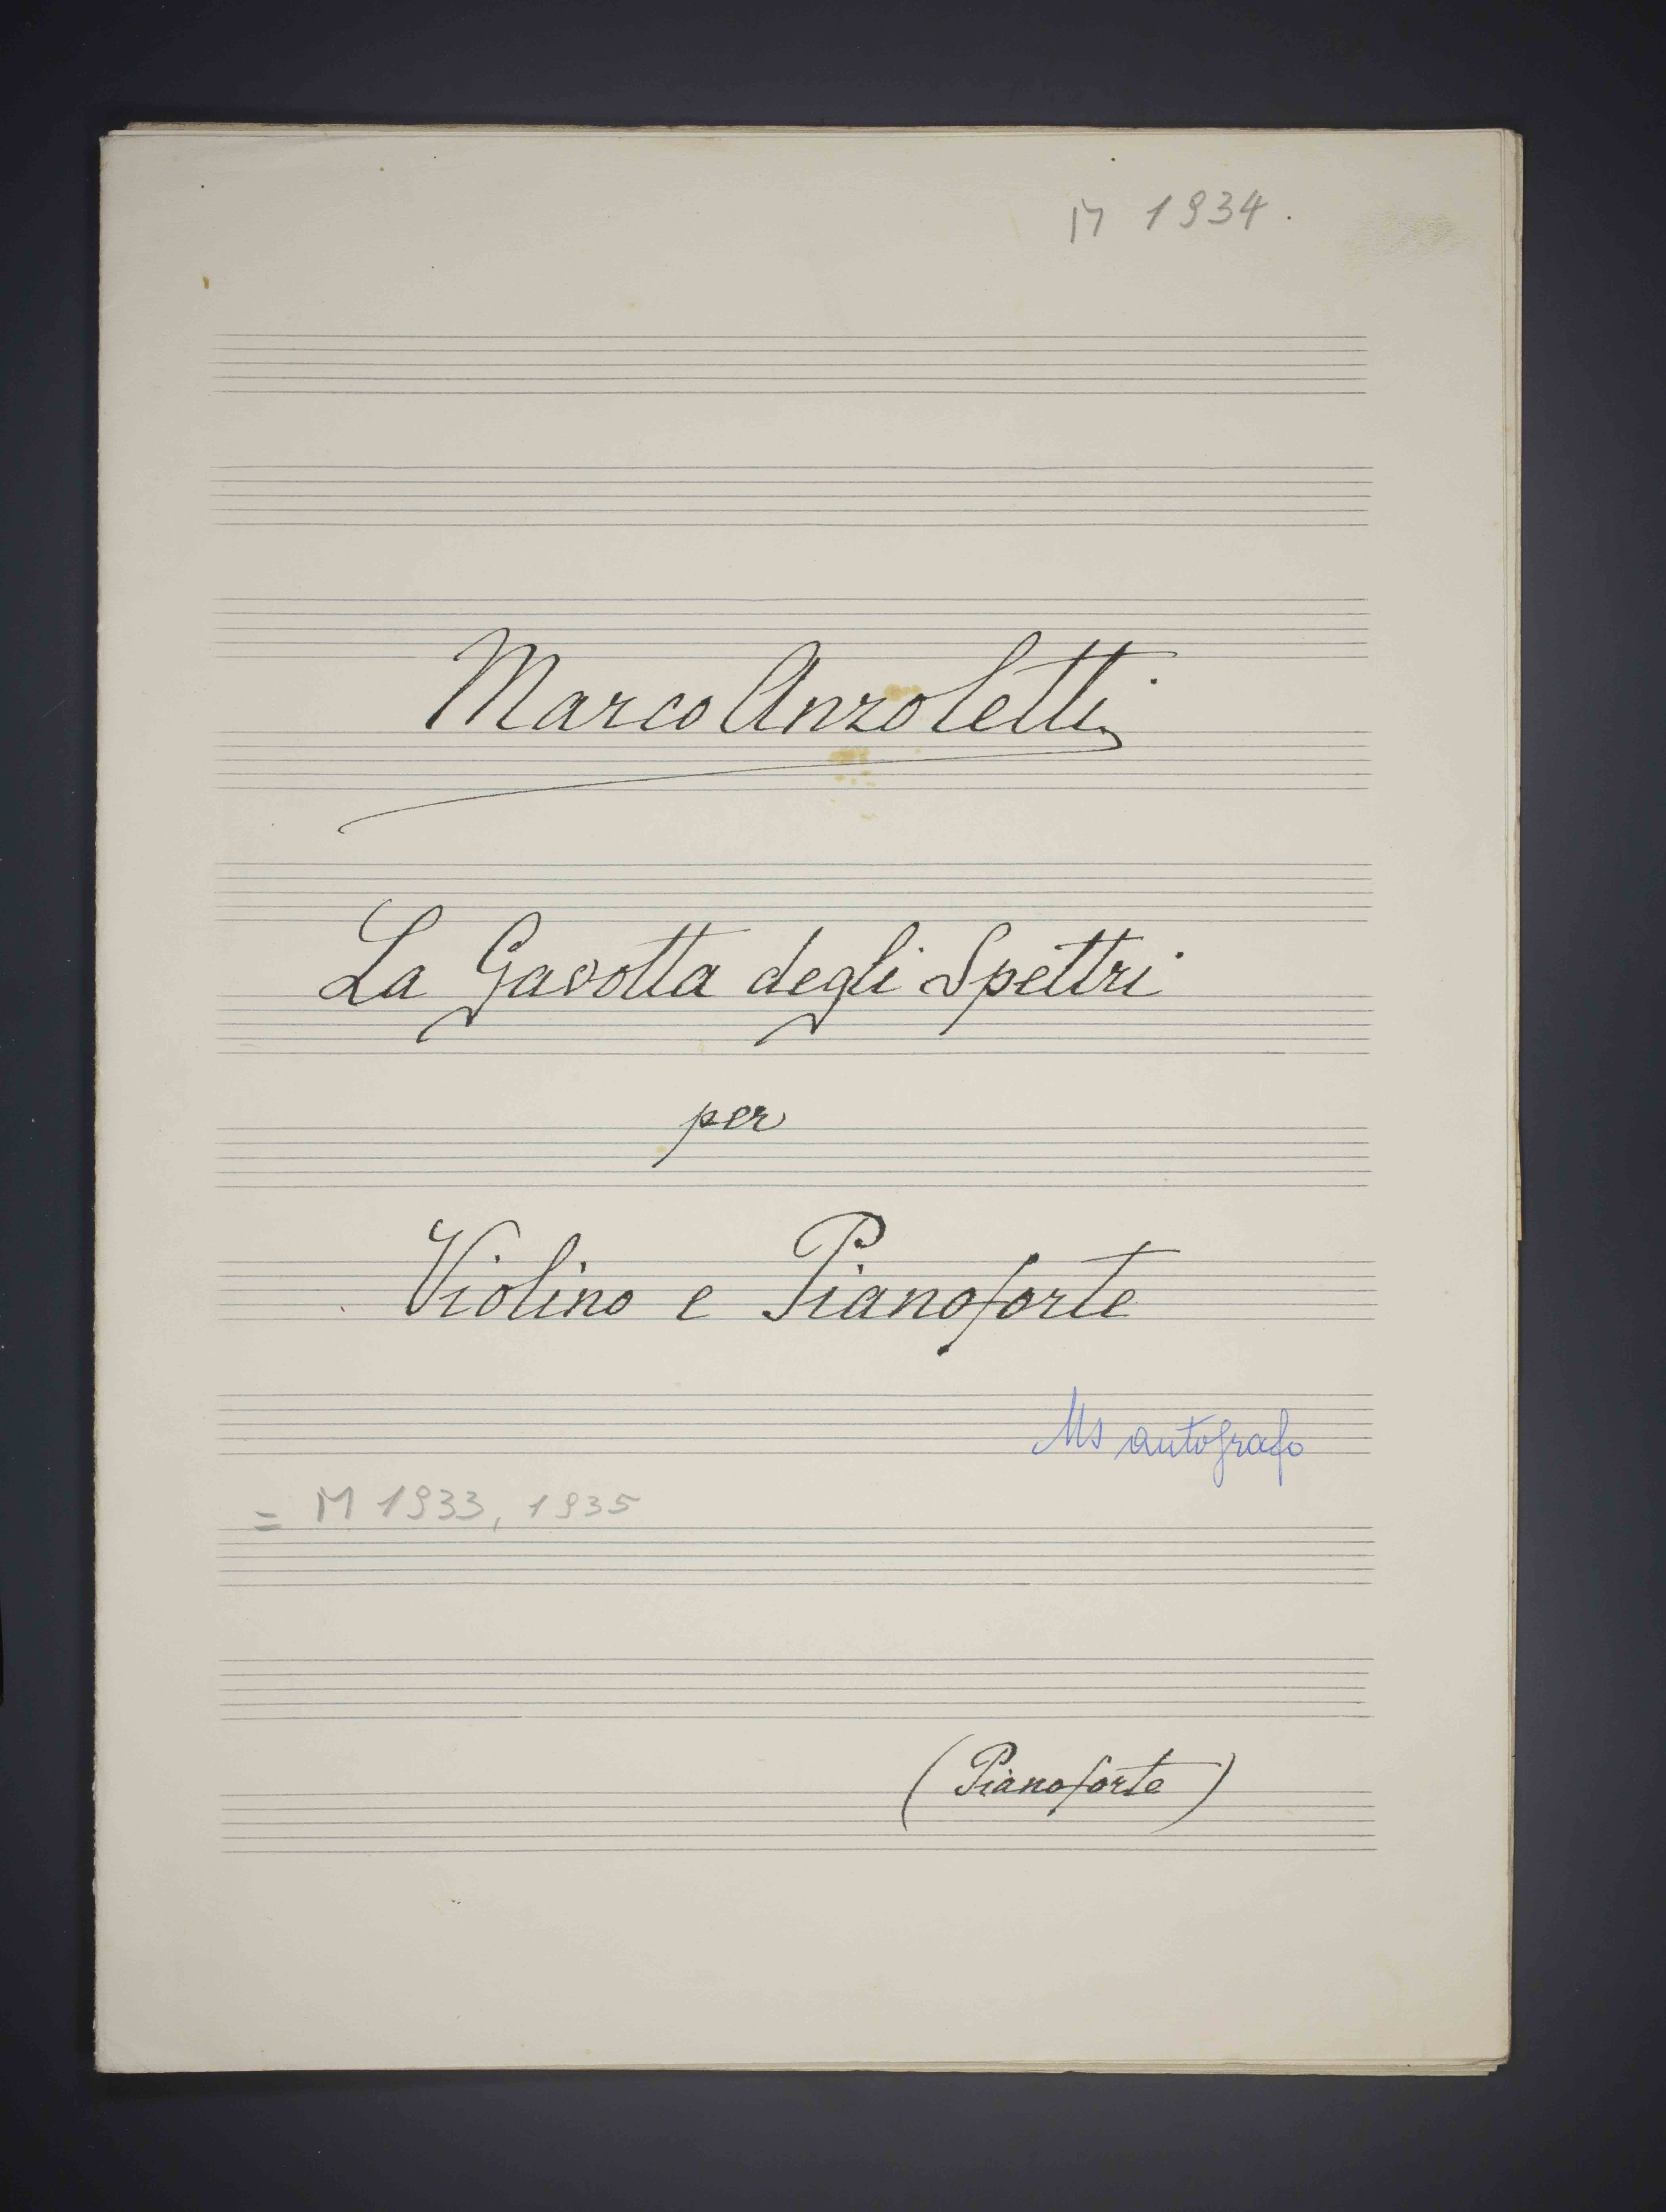 M 1934.
Marco Anzoletti
La Gavotta degli Spettri
per
Violino e Pianoforte
Ms autografo
= M 1933, 1935
(Pianoforte)